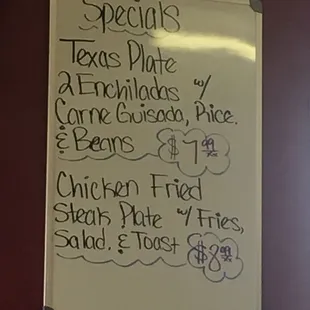 Specials
Texas Plate
2 Enchiladas w/
Carne Guisada, Rice.
& Beans $7.99 +tx
Chicken Fried
Steak Plate w/ Fries,
Salad. & Toast $8.99 +tx